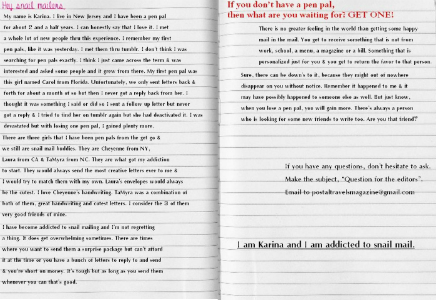 Hey snail mailers,
My name is Karina. I live in New Jersey and I have been a pen pal
for about 2 and a half years. I can honestly say that I love it. I met
a whole lot of new people thru this experience. I remember my first
pen pals, like it was yesterday. I met them thru tumblr. I don't think I was
searching for pen pals exactly. I think I just came across the term & was
interested and asked some people and it grew from there. My first pen pal was
this girl named Carol from Florida. Unfortunately, we only sent letters back &
forth for about a month or so but then I never got a reply back from her. I
thought it was something I said or did so I sent a follow up letter but never
got a reply & I tried to find her on tumblr again but she had deactivated it. I was
devastated but with losing one pen pal, I gained plenty more.
There are three girls that I have been pen pals from the get go &
we still are snail mail buddies. They are Cheyenne from NY,
Laura from CA & TaMyra from NC. They are what got me addiction
to start. They would always send the most creative letters ever to me &
I would try to match them with my own. Laura's envelopes would always
be the cutest. I love Cheyenne's handwriting. TaMyra was a combination of
both of them, great handwriting and cutest letters. I consider the 3 of them
very good friends of mine.
I have become addicted to snail mailing and I'm not regretting
a thing. It does get overwhelming sometimes. There are times
where you want to send them a surprise package but can't afford
it at the time or you have a bunch of letters to reply to and send
& you're short on money. It's tough but as long as you send them
whenever you can that's good.
If you don't have a pen pal,
then what are you waiting for? GET ONE!
There is no greater feeling in the world than getting some happy
mail in the mail. You get to receive something that is not from
work, school, a menu, a magazine or a bill. Something that is
personalized just for you & you get to return the favor to that person.
Sure, there can be down's to it, because they might out of nowhere
disappear on you without notice. Remember it happened to me & it
may have possibly happened to someone else as well. But just know,
when you lose a pen pal, you will gain more. There's always a person
who is looking for some new friends to write too. Are you that friend?
If you have any questions, don't hesitate to ask.
Make the subject, "Question for the editors".
Email to postaltravelsmagazine@gmail.com
I am Karina and I am addicted to snail mail.